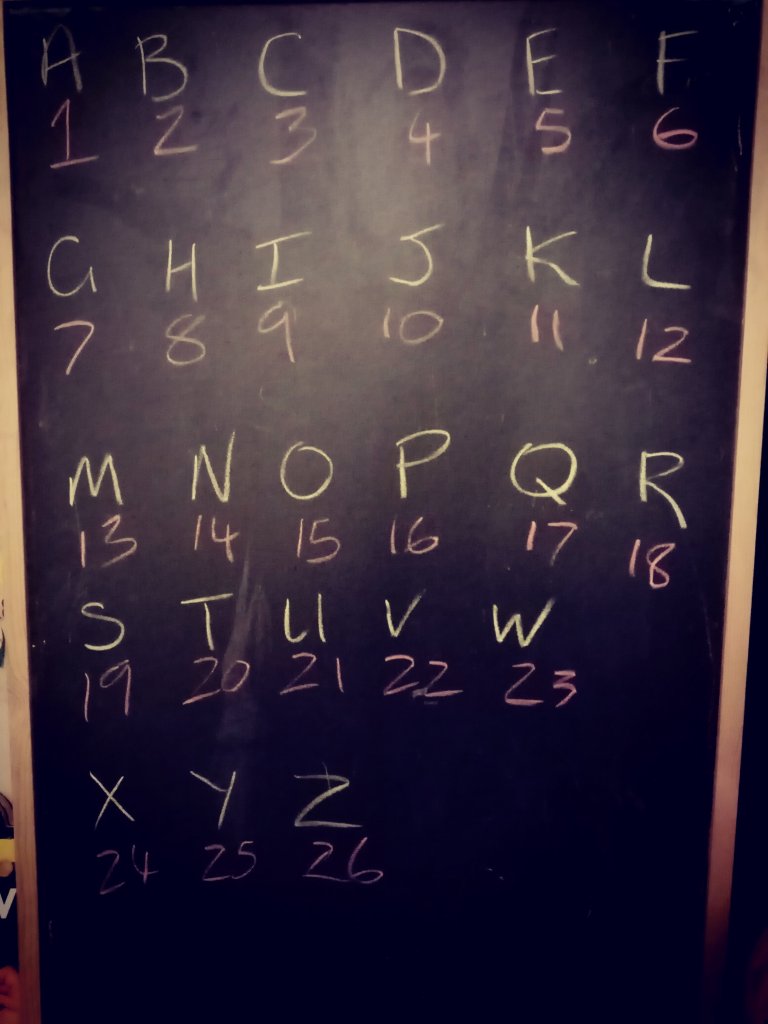 A B C D E F
1 2 3 4 5 6
G H I J K L
7 8 9 10 11 12
M N O P Q R
13 14 15 16 17 18
S T U V W
19 20 21 22 23
X Y Z
24 25 26